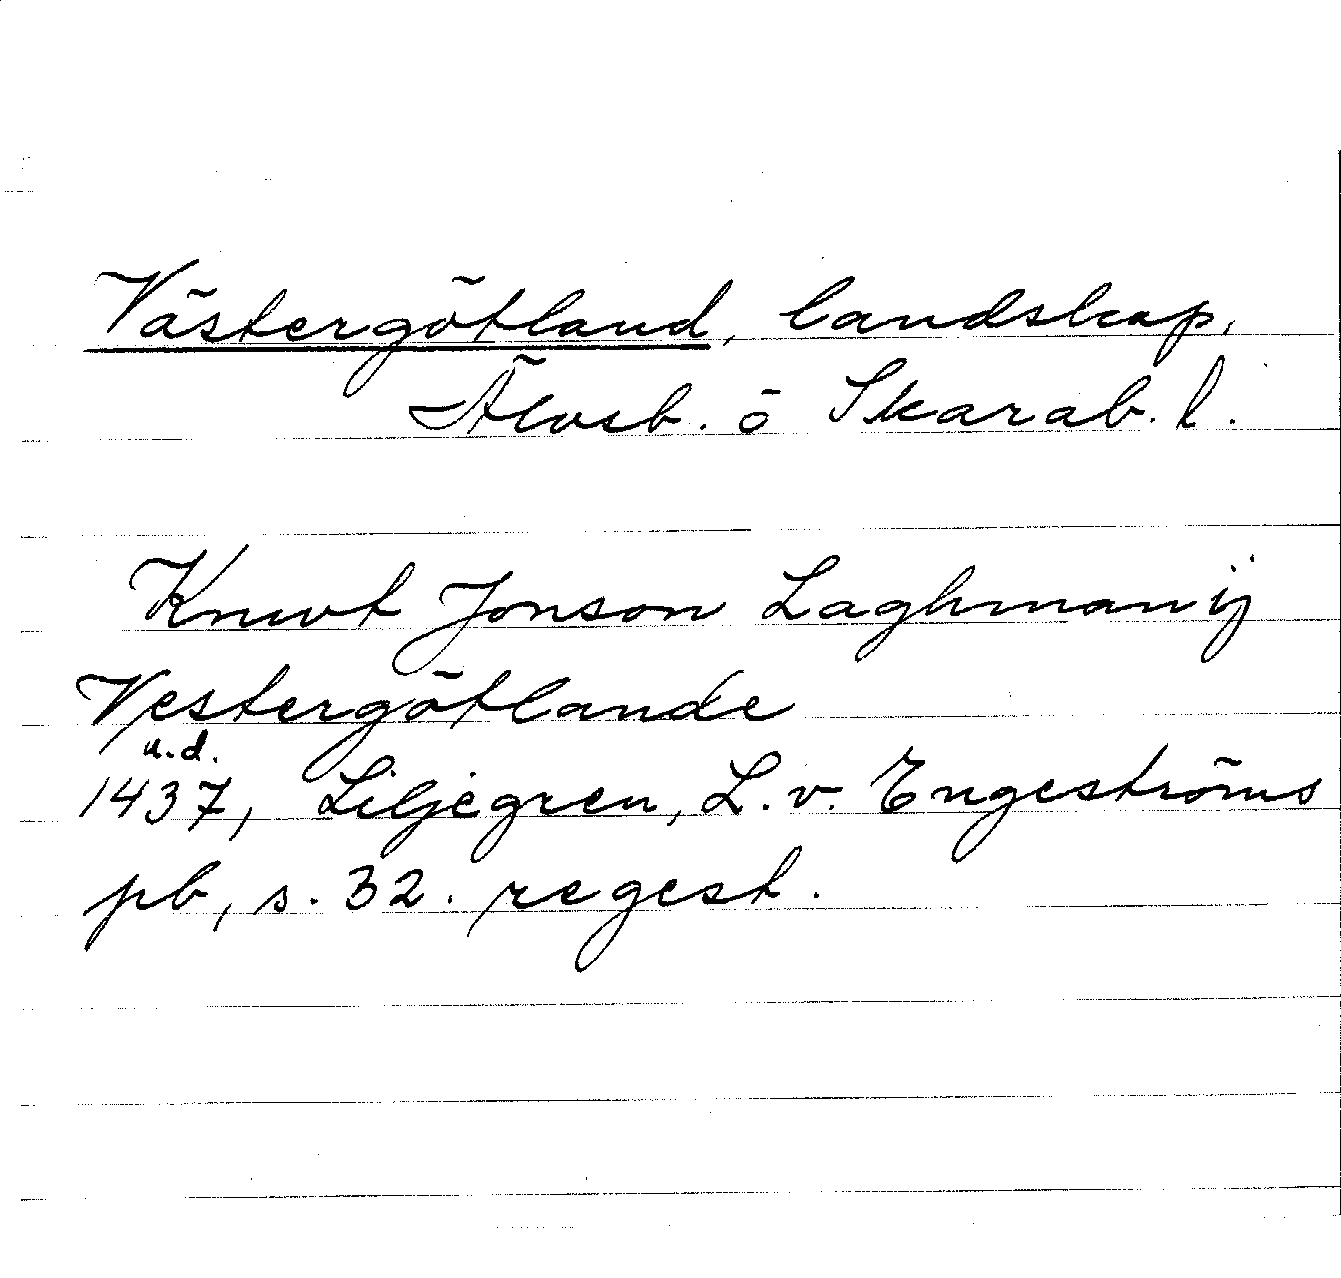 Västergötland, landskap,
Älvsb. o Skarab. l.
Knwt Jonson Laghman ij
Vestergötlande
u.d.
1437, Liljegren, L. v. Engeströms
pb, s. 32. regest.